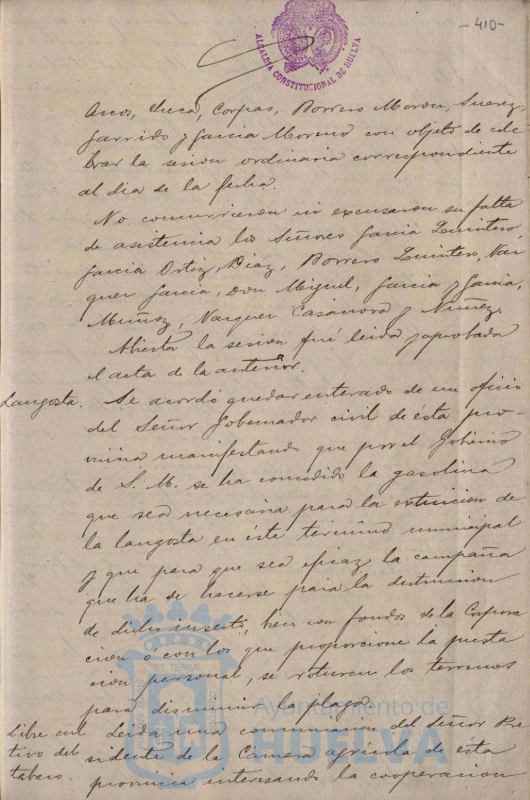 -410-
ALCALDIA CONSTITUCIONAL DE HUELVA
Arcos, Checa, Corpas, Borrero Moron, Suarez,
Garrido y Garcia Moreno con objeto de cele
brar la sesion ordinaria correspondiente
al dia de la fecha.
No concurrieron ni excusaron su falta
de asistencia los Señores Garcia Quintero,
Garcia Ortiz, Diaz, Borrero Quintero, Vaz
quez Garcia, Don Miguel, Garcia y Garcia,
Muñoz, Vazquez Casanova y Nuñez.
Abierta la sesion fué leida y aprobada
el acta de la anterior.
Langosta. Se acordó quedar enterado de un oficio
del Señor Gobernador civil de ésta pro
vincia manifestando que por el Gobierno
de S. M. se ha concedido la gasolina
que sea necesaria para la extincion de
la langosta en éste término municipal
y que para que sea eficaz la campaña
que ha de hacerse para la destruccion
de dicho insecto, bien con fondos de la Corpora
cion ó con los que proporcione la presta
cion personal, se roturen los terrenos
para disminuir la plaga.
Libre cul Leida una comunicacion del Señor Pre
tivo del sidente de la Cámara agricola de ésta
tabaco. provincia interesando la cooperacion
Ayuntamiento de
HUELVA